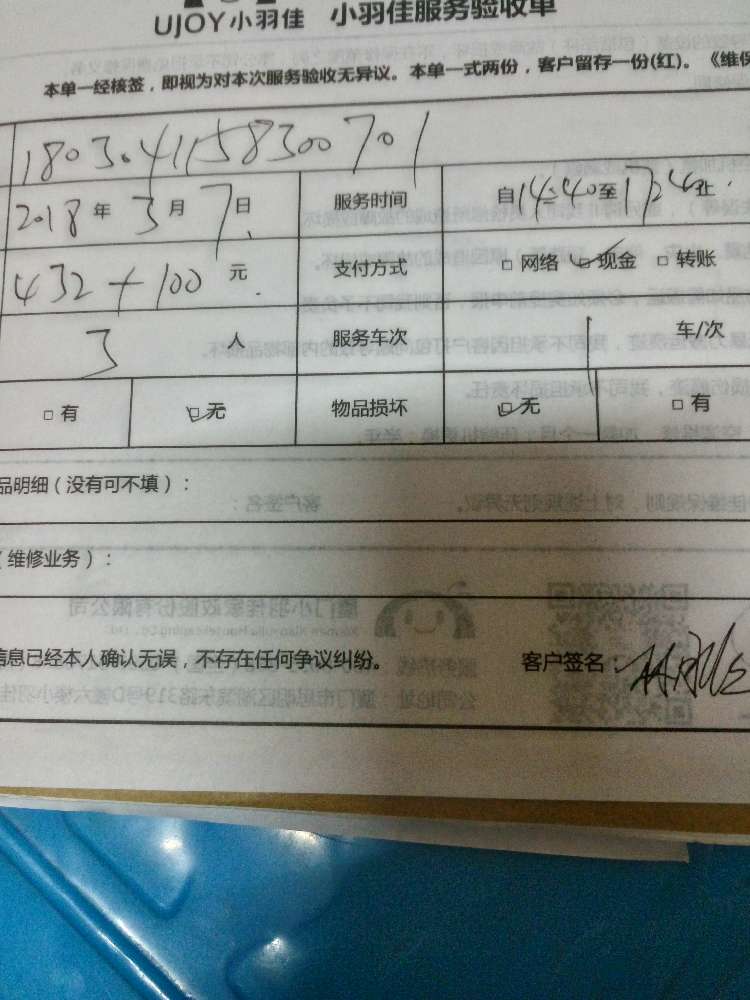 UJOY小羽佳 小羽佳服务验收单
本单一经核签，即视为对本次服务验收无异议。本单一式两份，客户留存一份(红)。《维保
1803.41158300701
2018年3月7日 服务时间 自14:40至17:24止
432+100元 支付方式 □网络 ☑现金 □转账
3人 服务车次 1车/次
□有 ☑无 物品损坏 ☑无 □有
品明细（没有可不填）：
（维修业务）：
信息已经本人确认无误，不存在任何争议纠纷。 客户签名：